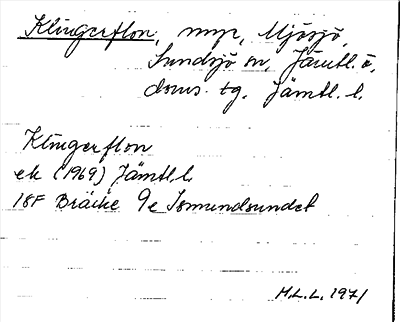 Klingerflon, myr, Mjösjö,
Sundsjö sn, Jämtl. ö.
doms. tg. Jämtl. l.
Klingerflon
ek (1969) Jämtl. l.
18F Bräcke 9e Ismundsundet
M.L.L. 1971